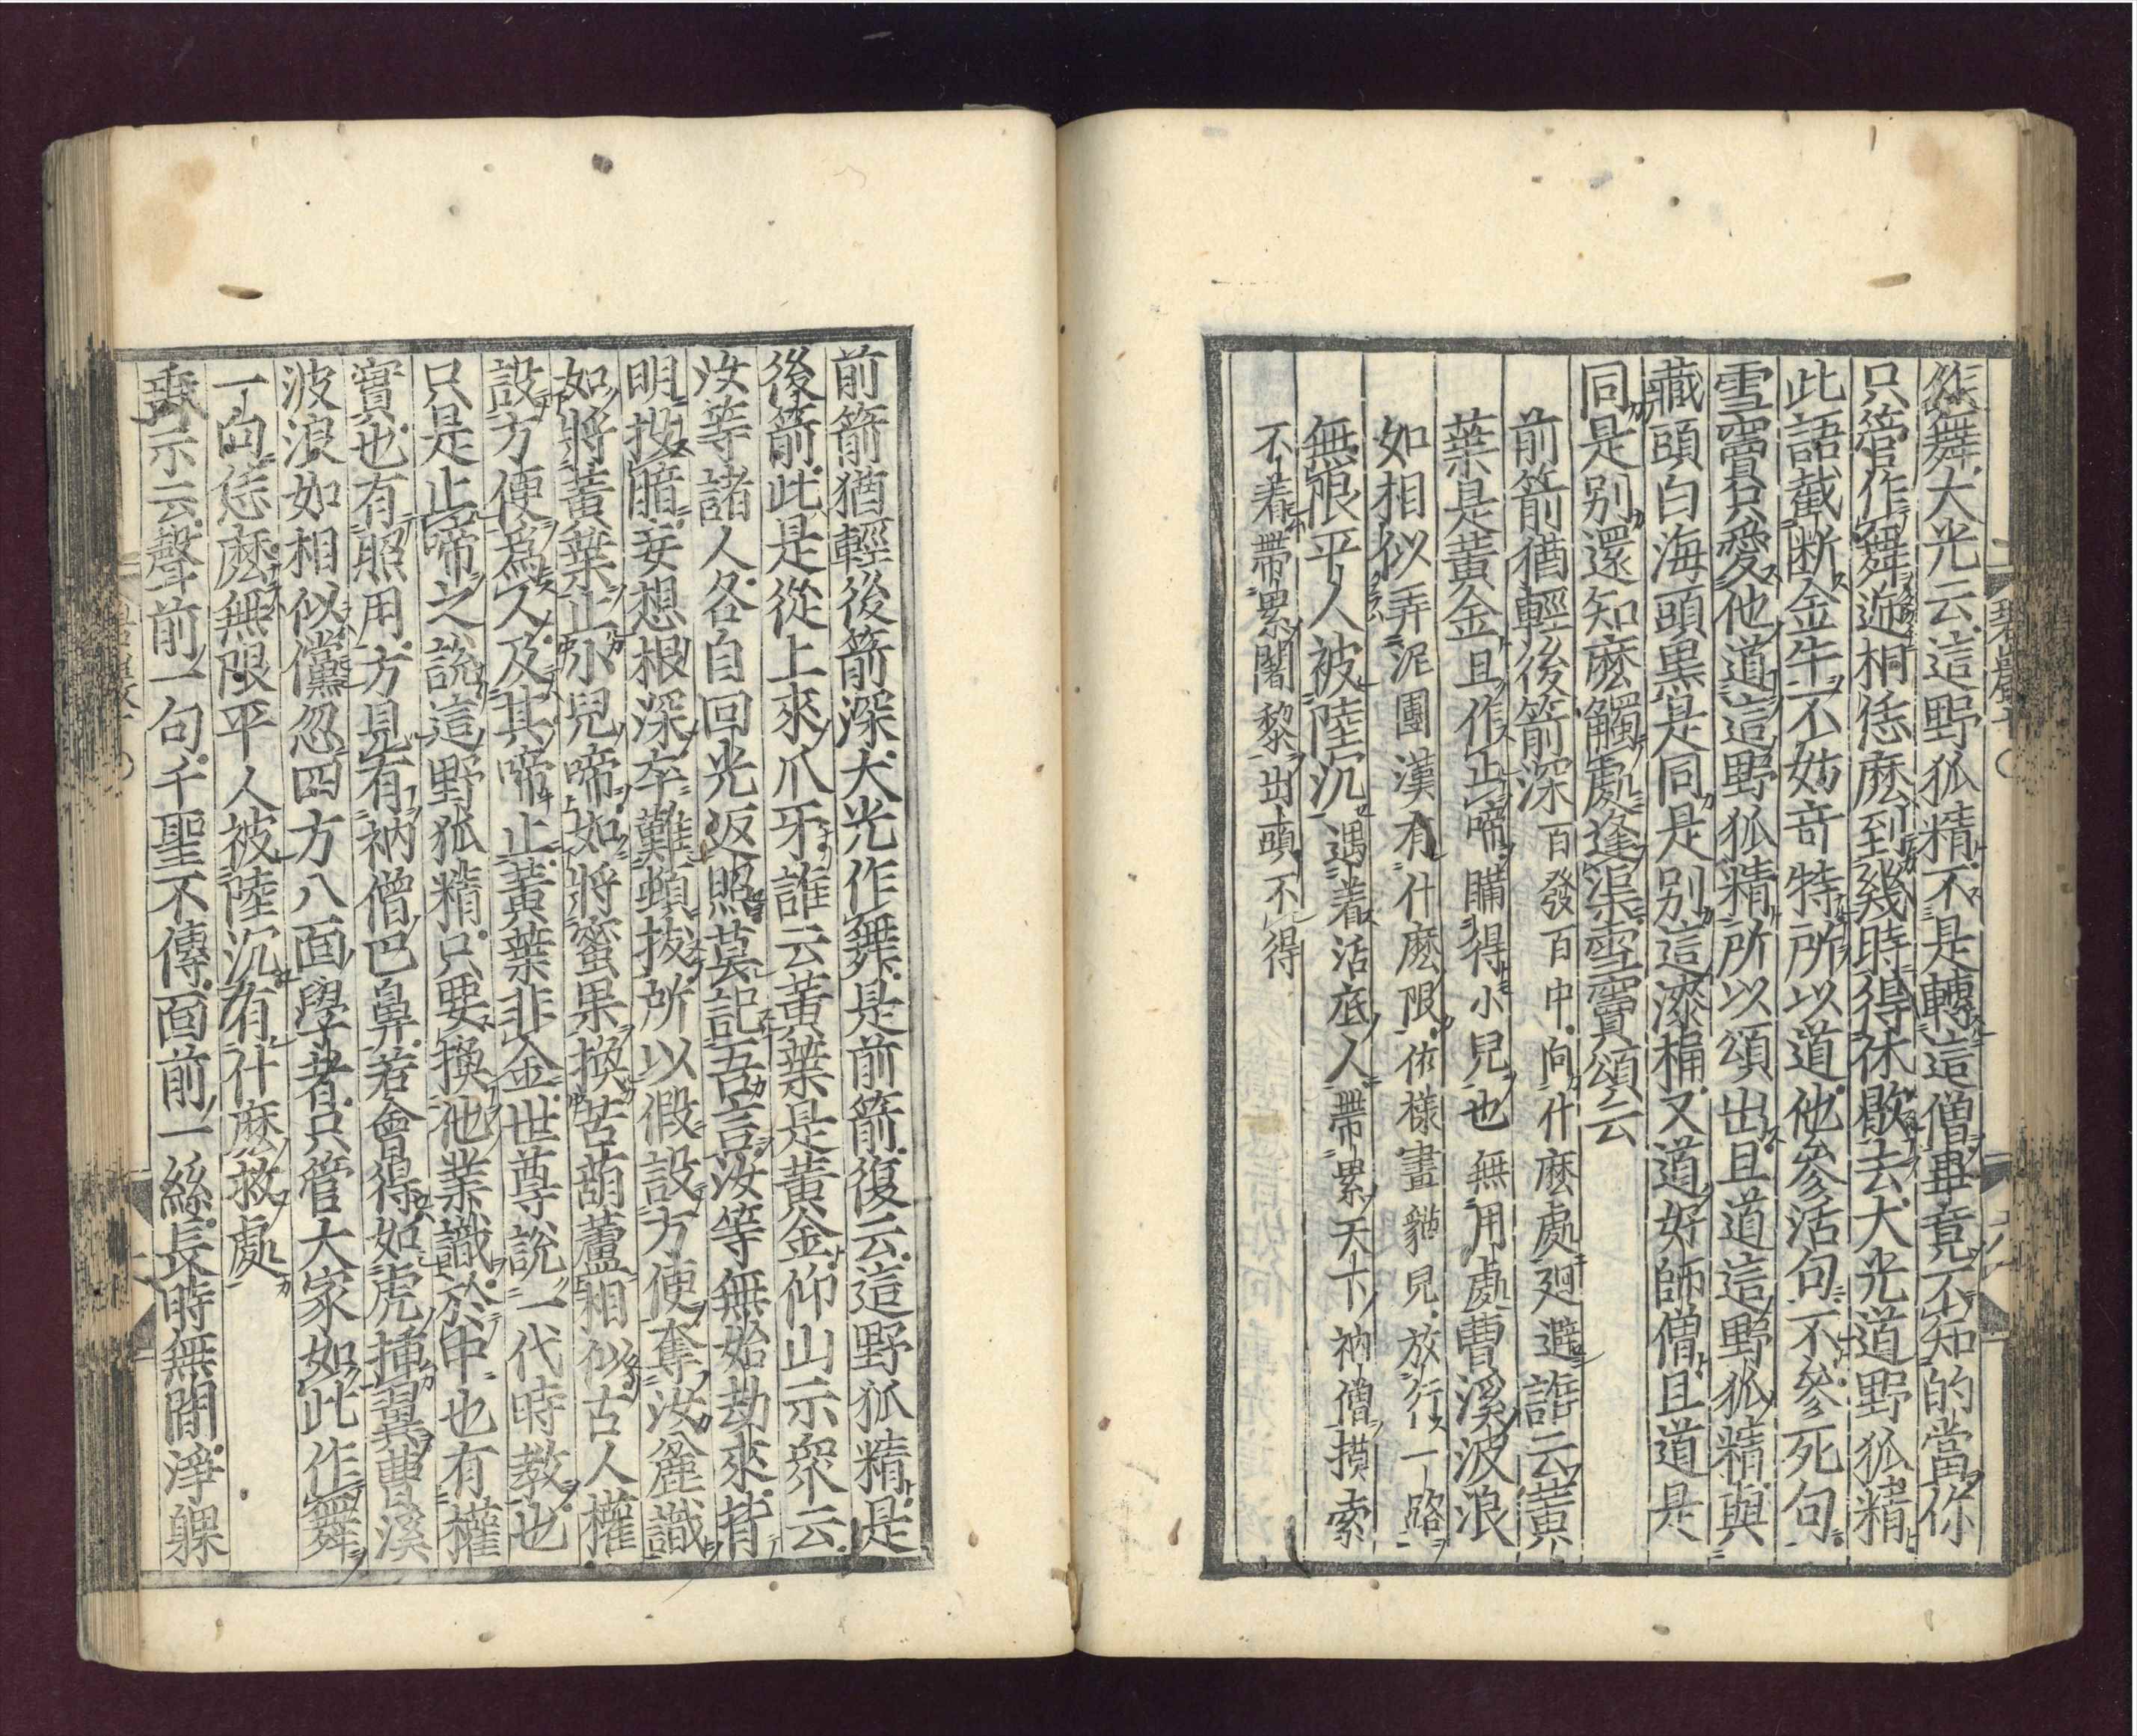 作舞大光云這野狐精不是轉這僧畢竟不知的當你
只管作舞逓相恁麽到幾時得休歇去大光道野狐精
此語截断金牛不妨竒特所以道他參活句不參死句
雪竇只愛他道這野狐精所以頌出且道這野狐精與
藏頭白海頭黒是同是别這漆桶又道好師僧且道是
同是别還知麽觸處逢渠雪竇頌云
前箭猶輕後箭深百發百中向什麽處廻避誰云黄
葉是黄金且作止啼瞞得小兒也無用處曹溪波浪
如相似弄泥團漢有什麽限依樣畫猫兒放行一路
無限平人被陸沉遇着活底人帶累天下衲僧摸索
不着帶累闍黎出頭不得
前箭猶輕後箭深大光作舞是前箭復云這野狐精是
後箭此是從上來爪牙誰云黄葉是黄金仰山示衆云
汝等諸人各自回光返照莫記吾言汝等無始劫來背
明投暗妄想根深卒難頓抜所以假設方便奪汝麄識
如將黄葉止小兒啼如將蜜果換苦葫蘆相似古人權
設方便爲人及其啼止黄葉非金世尊說一代時教也
只是止啼之說這野狐精只要換他業識於中也有權
實也有照用方見有衲僧巴鼻若會得如虎揷翼曹溪
波浪如相似儻忽四方八面學者只管大家如此作舞
一向恁麽無限平人被陸沉有什麽救處
垂示云聲前一句千聖不傳面前一絲長時無間淨躶